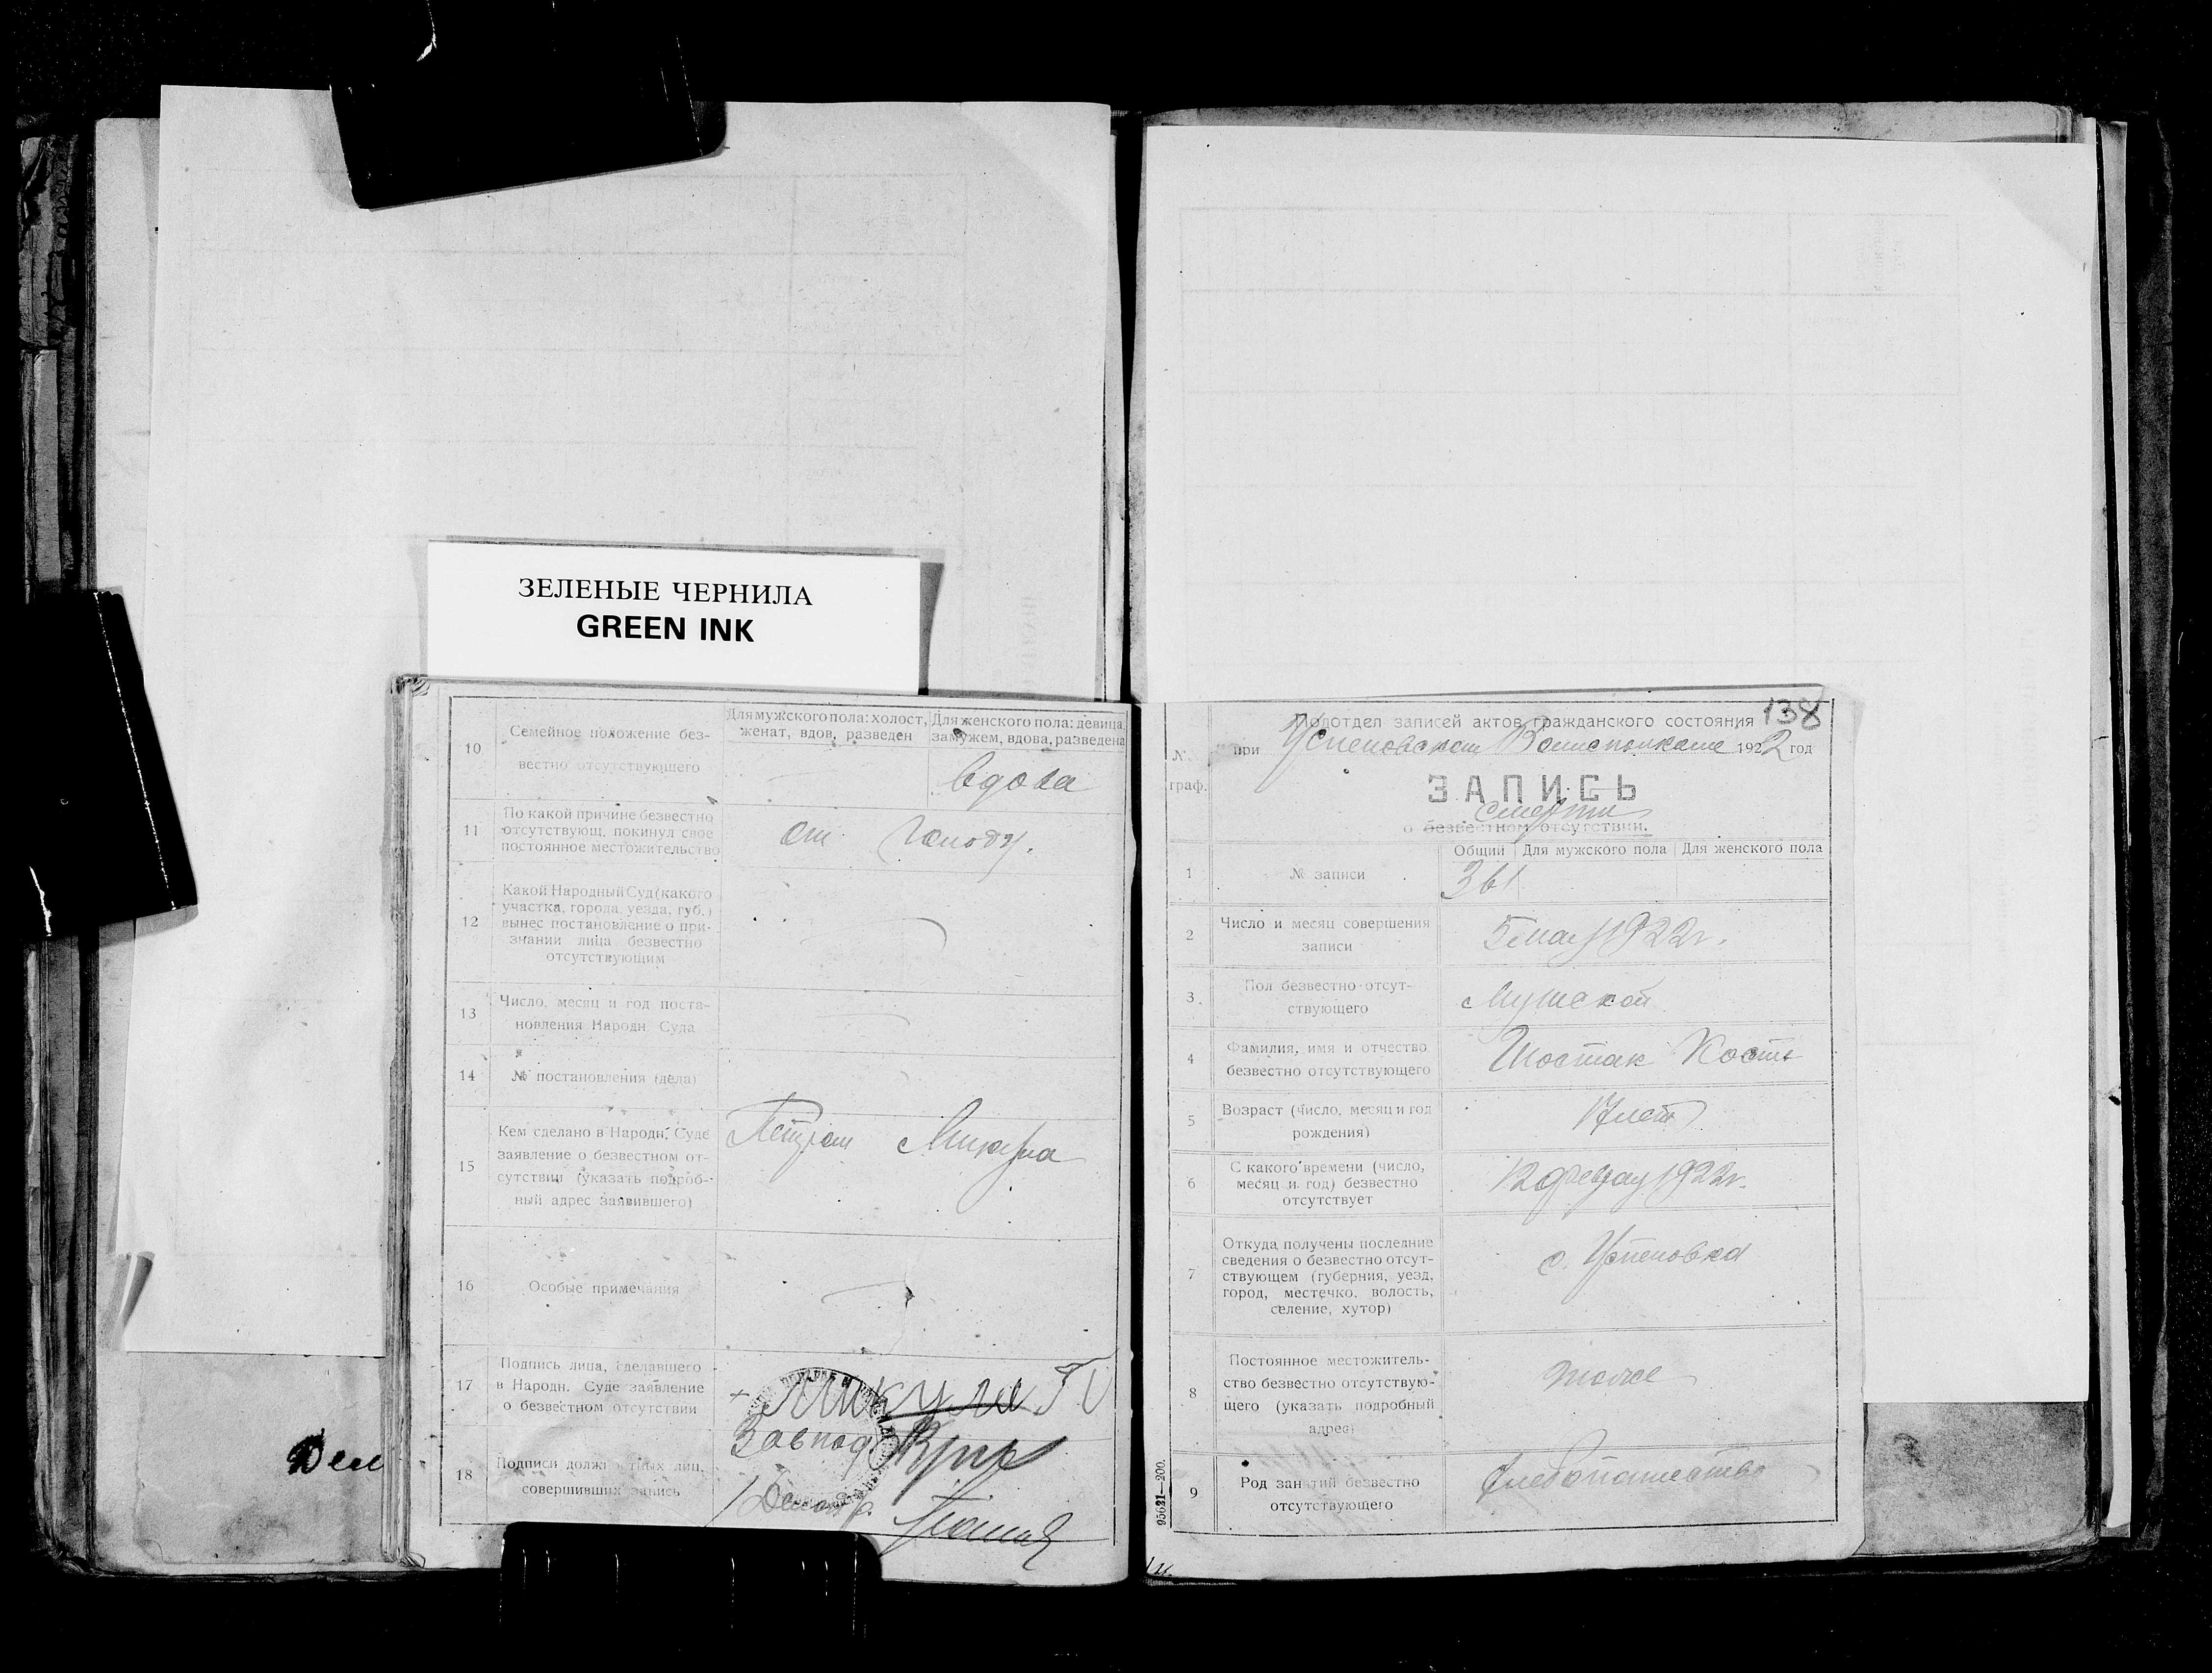 ЗЕЛЕНЫЕ ЧЕРНИЛА
GREEN INK
10
Семейное положение без-
вестно отсутствующего
Для мужского пола: холост,
женат, вдов, разведен
Для женского пола: девица,
замужем, вдова, разведена
вдова
11
По какой причине безвестно
отсутствующ. покинул свое
постоянное местожительство
от голоду.
12
Какой Народный Суд (какого
участка, города, уезда, губ.)
вынес постановление о при-
знании лица безвестно
отсутствующим
13
Число, месяц и год поста-
новления Народн. Суда
14
№ постановления (дела)
15
Кем сделано в Народн. Суде
заявление о безвестном от-
сутствии (указать подроб-
ный адрес заявившего)
Петром Микула
16
Особые примечания
17
Подпись лица, сделавшего
в Народн. Суде заявление
о безвестном отсутствии
Микула П
18
Подписи должностных лиц,
совершивших запись
Завпод
Дел
138
Подотдел записей актов гражданского состояния
при Успеновском Волисполкоме 1922 год
№
граф.
ЗАПИСЬ
смерти
о безвестном отсутствии.
1
№ записи
Общий
Для мужского пола
Для женского пола
361
2
Число и месяц совершения
записи
5 мая 1922г.
3
Пол безвестно отсут-
ствующего
Мушской
4
Фамилия, имя и отчество
безвестно отсутствующего
Шостак Кость
5
Возраст (число, месяц и год
рождения)
17 лет
6
С какого времени (число,
месяц и год) безвестно
отсутствует
12 1922г.
7
Откуда получены последние
сведения о безвестно отсут-
ствующем (губерния, уезд,
город, местечко, волость,
селение, хутор)
с. Успеновка
8
Постоянное местожитель-
ство безвестно отсутствую-
щего (указать подробный
адрес)
тоже
9
Род занятий безвестно
отсутствующего
хлебопашество
95621—200.